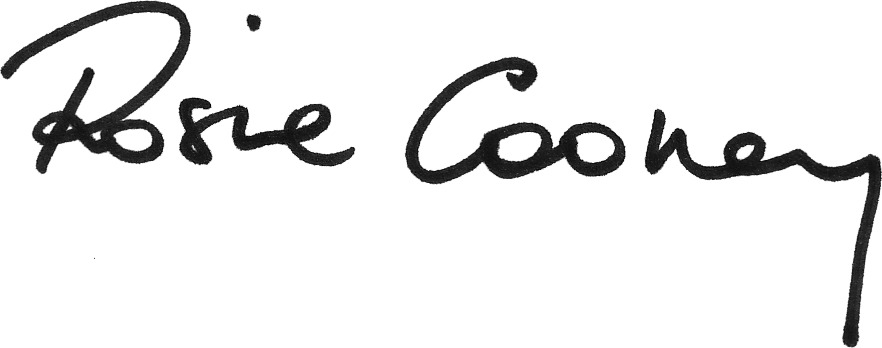 Rosie Cooney